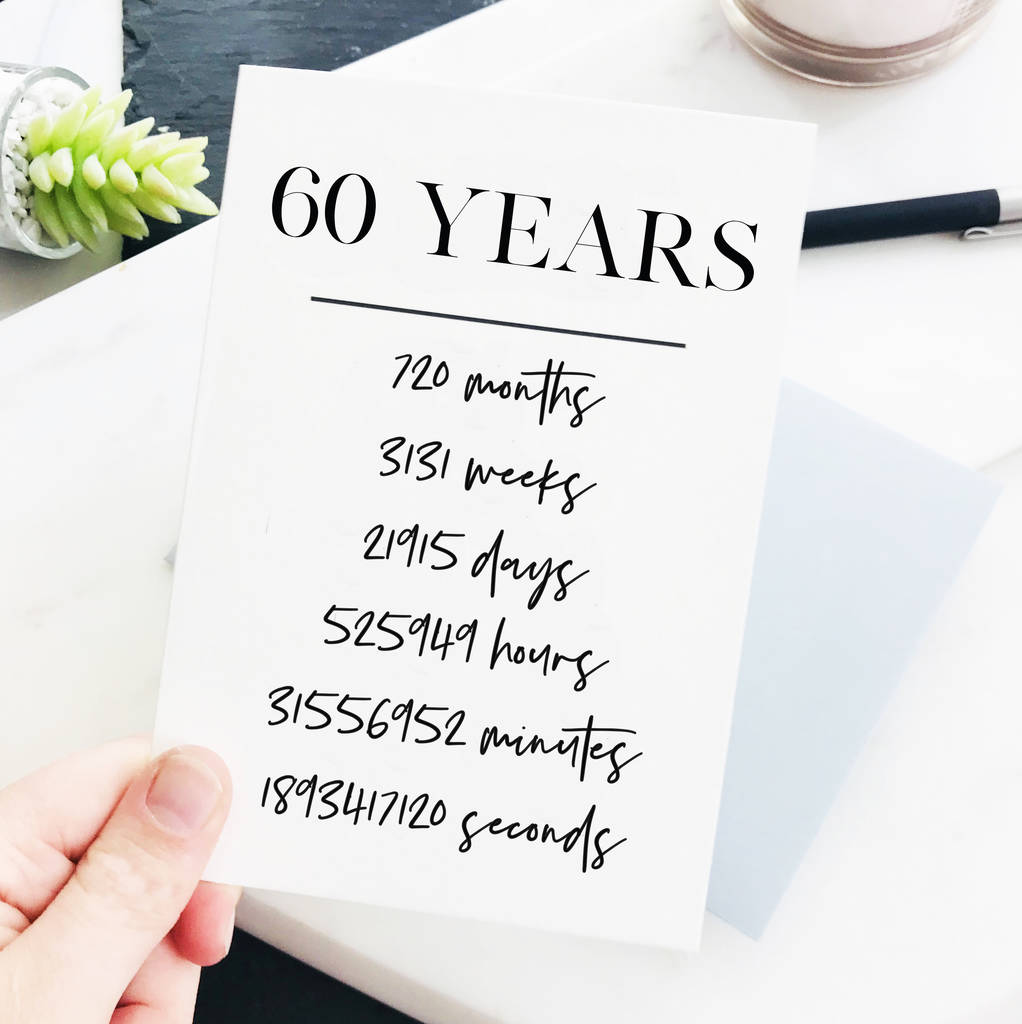 60 YEARS
720 months
3131 weeks
21915 days
525949 hours
31556952 minutes
1893417120 seconds